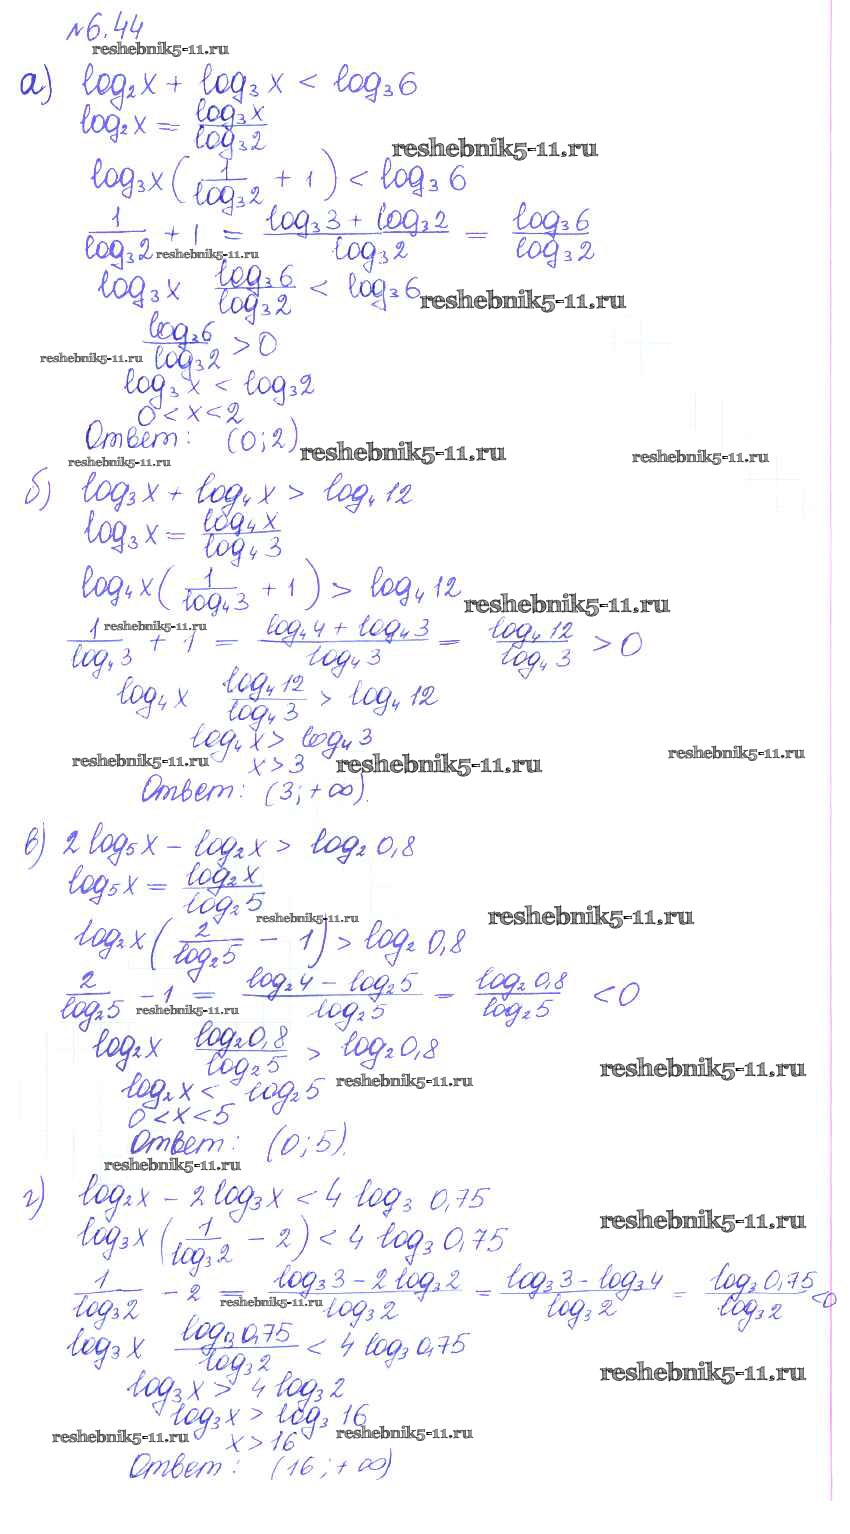 №6.44
reshebnik5-11.ru
а) log₂x + log₃x < log₃6
log₂x = log₃x / log₃2
reshebnik5-11.ru
log₃x (1 / log₃2 + 1) < log₃6
1 / log₃2 + 1 = (log₃3 + log₃2) / log₃2 = log₃6 / log₃2
reshebnik5-11.ru
log₃x log₃6 / log₃2 < log₃6
reshebnik5-11.ru
log₃6 / log₃2 > 0
reshebnik5-11.ru
log₃x < log₃2
0 < x < 2
Ответ: (0; 2)
reshebnik5-11.ru
reshebnik5-11.ru
reshebnik5-11.ru
б) log₃x + log₄x > log₄12
log₃x = log₄x / log₄3
log₄x (1 / log₄3 + 1) > log₄12
reshebnik5-11.ru
reshebnik5-11.ru
1 / log₄3 + 1 = (log₄4 + log₄3) / log₄3 = log₄12 / log₄3 > 0
log₄x log₄12 / log₄3 > log₄12
log₄x > log₄3
reshebnik5-11.ru
x > 3
reshebnik5-11.ru
reshebnik5-11.ru
Ответ: (3; +∞).
в) 2log₅x − log₂x > log₂0,8
log₅x = log₂x / log₂5
reshebnik5-11.ru
reshebnik5-11.ru
log₂x (2 / log₂5 − 1) > log₂0,8
2 / log₂5 − 1 = (log₂4 − log₂5) / log₂5 = log₂0,8 / log₂5 < 0
reshebnik5-11.ru
log₂x log₂0,8 / log₂5 > log₂0,8
reshebnik5-11.ru
log₂x < log₂5
reshebnik5-11.ru
0 < x < 5
Ответ: (0; 5).
reshebnik5-11.ru
г) log₂x − 2log₃x < 4 log₃0,75
reshebnik5-11.ru
log₃x (1 / log₃2 − 2) < 4 log₃0,75
1 / log₃2 − 2 = (log₃3 − 2log₃2) / log₃2 = (log₃3 − log₃4) / log₃2 = log₃0,75 / log₃2 < 0
reshebnik5-11.ru
log₃x log₃0,75 / log₃2 < 4 log₃0,75
reshebnik5-11.ru
log₃x > 4log₃2
log₃x > log₃16
reshebnik5-11.ru
x > 16
reshebnik5-11.ru
Ответ: (16; +∞)